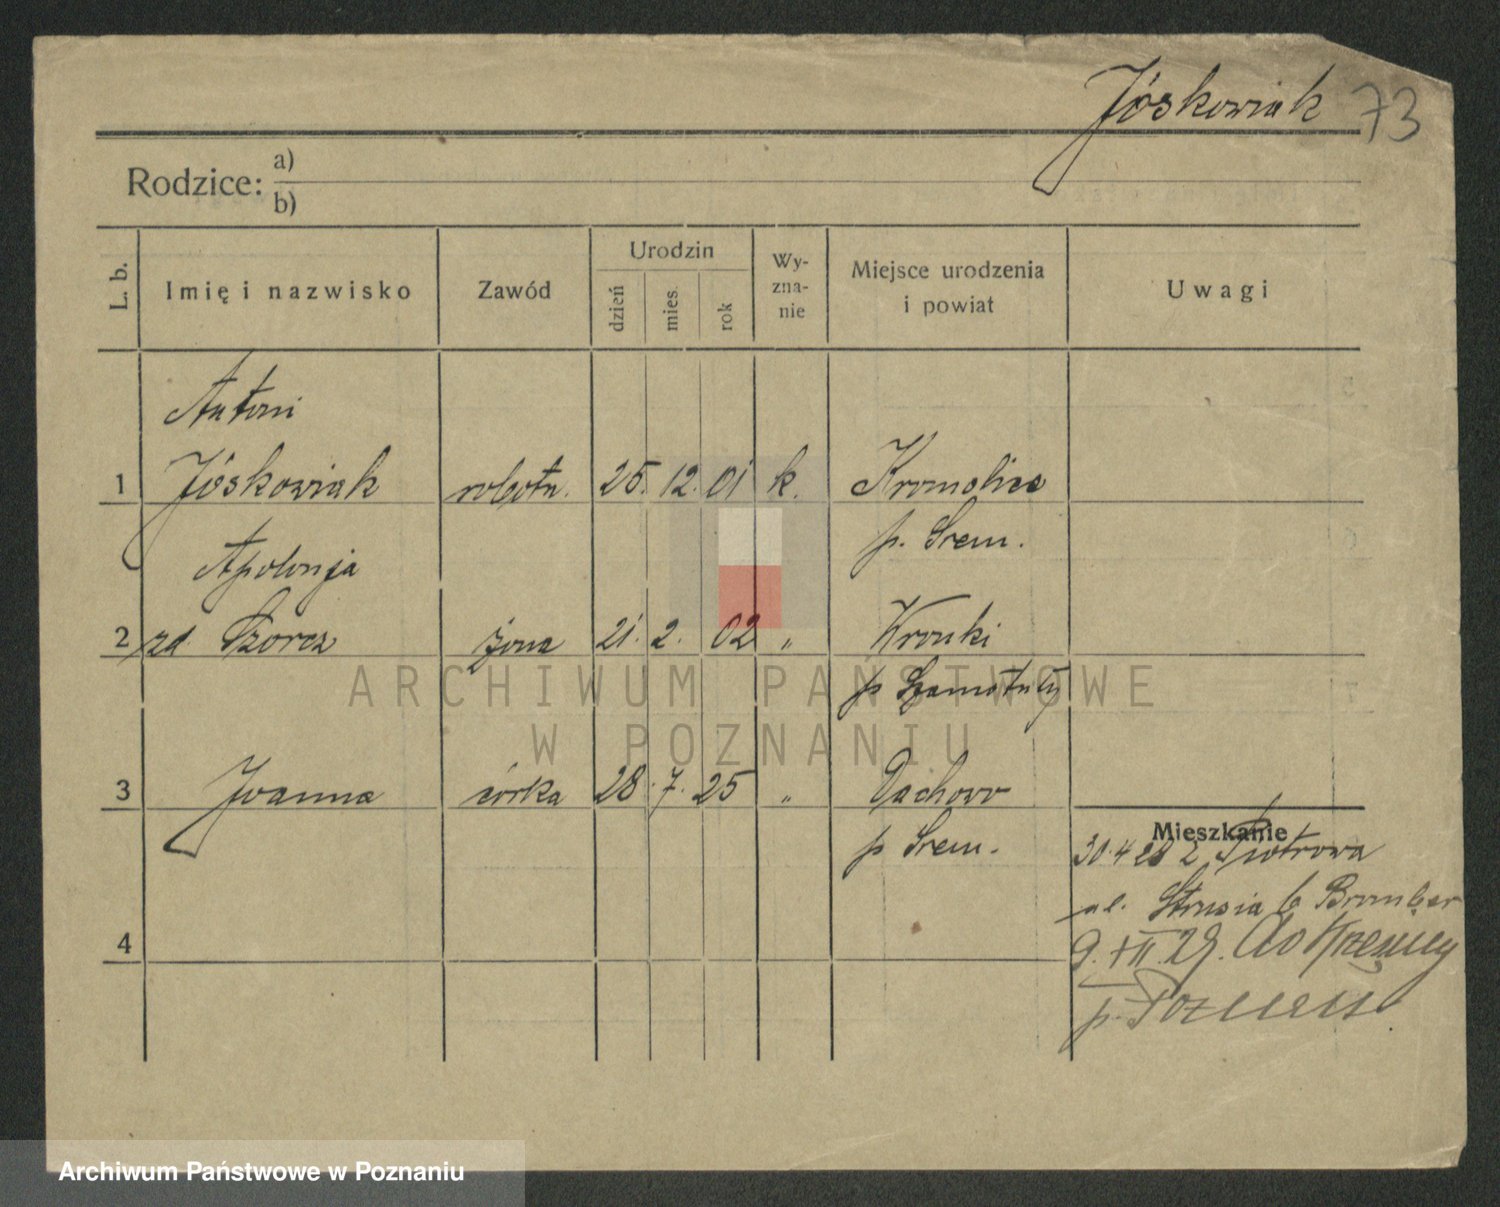 Jóskowiak 73
Rodzice: a)
b)
L. b.
Imię i nazwisko
Zawód
Urodzin
dzień
mies.
rok
Wy-
zna-
nie
Miejsce urodzenia
i powiat
Uwagi
Antoni
1 Jóskowiak robotn. 25. 12. 01 k. Kromolice
p. Śrem.
Apolonja
2 zd. żona 21. 2. 02 „ Wronki
p Szamotuły
3 Joanna córka 28. 7. 25 „ Dachowo
p Śrem.
Mieszkanie
30.4 28 z Piotrowa
ul. Strusia b
9. XII. 29. do
p. Poznań
4
ARCHIWUM PAŃSTWOWE
W POZNANIU
Archiwum Państwowe w Poznaniu